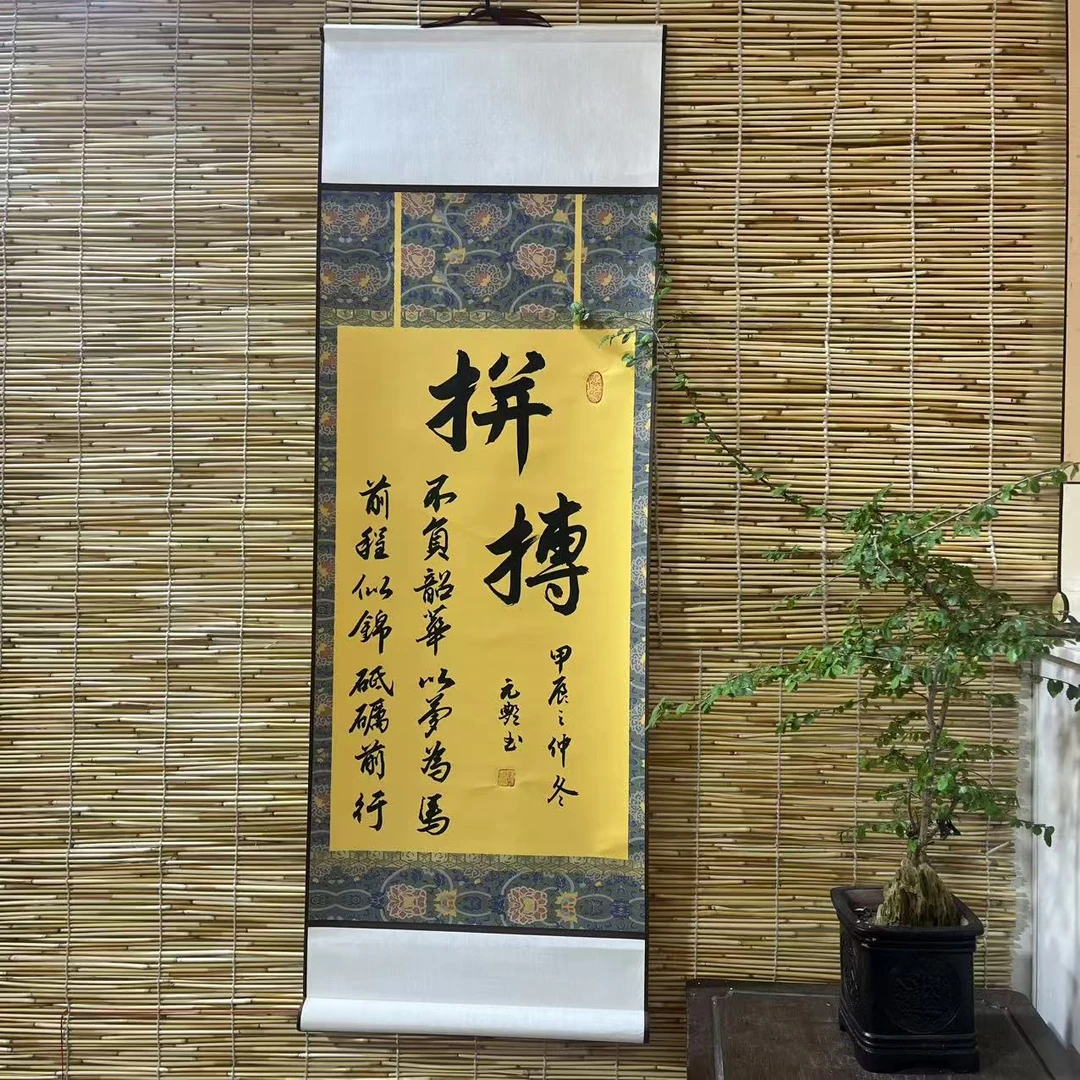 拼搏
不負韶華以夢為馬
前程似錦砥礪前行
甲辰之仲冬
元艷书